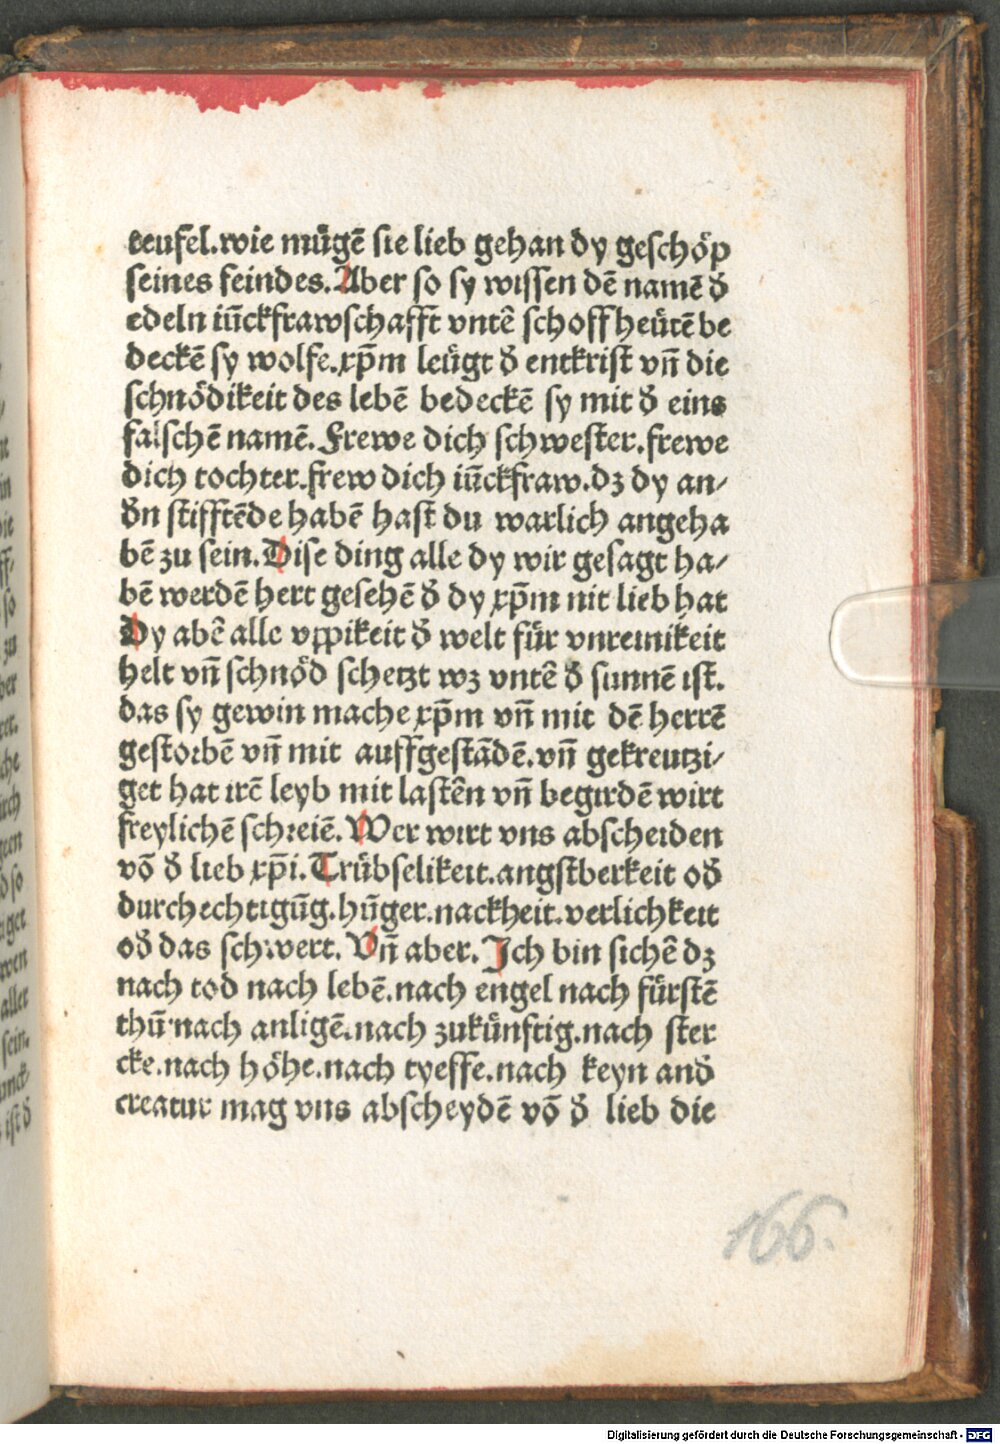 teufel.wie mügē sie lieb gehan dy geschöp
seines feindes.Aber so sy wissen dē namē đ
edeln iūckfrawschafft vntē schoffheütē be
deckē sy wolfe.xp̄m leügt đ entkrist vn̄ die
schnödikeit des lebē bedeckē sy mit đ eins
falschē namē.Frewe dich schwester.frewe
dich tochter.frew dich iūckfraw.dz dy an⸗
đn stifftēde habē hast du warlich angeha
bē zu sein.Dise ding alle dy wir gesagt ha⸗
bē werdē hert gesehē đ dy xp̄m nit lieb hat
Dy abē alle vppikeit đ welt für vnreinikeit
helt vn̄ schnöd schetzt wz vntē đ sunnē ist.
das sy gewin mache xp̄m vn̄ mit dē herrē
gestorbē vn̄ mit auffgestādē.vn̄ gekreutzi⸗
get hat irē leyb mit lastēn vn̄ begirdē wirt
freylichē schreiē.Wer wirt vns abscheiden
vō đ lieb xp̄i.Trübselikeit.angstberkeit ođ
durchechtigūg.hūger.nackheit.verlichkeit
ođ das schwert. Vn̄ aber.Ich bin sichē dz
nach tod nach lebē.nach engel nach fürstē
thū.nach anligē.nach zukünftig.nach ster
cke.nach höhe.nach tyeffe.nach keyn anđ
creatur mag vns abscheydē vō đ lieb die
166.
Digitalisierung gefördert durch die Deutsche Forschungsgemeinschaft - DFG